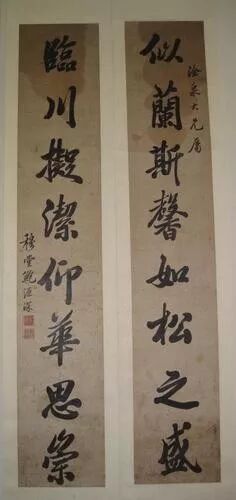 滄泉大兄屬
似蘭斯馨如松之盛
臨川擬潔仰華思崇
穆堂鮑源深